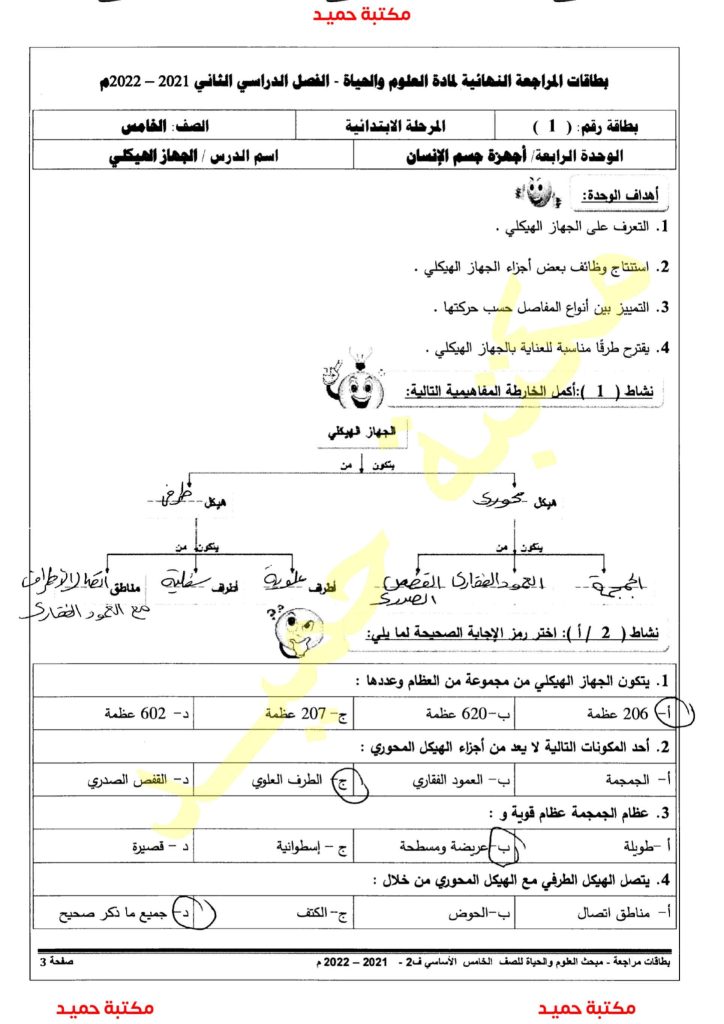 مكتبة حميد
بطاقات المراجعة النهائية لمادة العلوم والحياة - الفصل الدراسي الثاني 2021 – 2022م
بطاقة رقم: ( 1 ) المرحلة الابتدائية الصف: الخامس
الوحدة الرابعة/ أجهزة جسم الإنسان اسم الدرس / الجهاز الهيكلي
أهداف الوحدة:
1. التعرف على الجهاز الهيكلي .
2. استنتاج وظائف بعض أجزاء الجهاز الهيكلي .
3. التمييز بين أنواع المفاصل حسب حركتها .
4. يقترح طرقًا مناسبة للعناية بالجهاز الهيكلي .
نشاط ( 1 ):أكمل الخارطة المفاهيمية التالية:
الجهاز الهيكلي
يتكون من
هيكل محوري هيكل طرفي
يتكون من يتكون من
الجمجمة العمود الفقاري القفص الصدري أطرف علوية أطرف سفلية مناطق اتصال الأطراف
مع العمود الفقاري
نشاط ( 2 /أ ): اختر رمز الإجابة الصحيحة لما يلي:
1. يتكون الجهاز الهيكلي من مجموعة من العظام وعددها :
أ- 206 عظمة ب- 620 عظمة ج- 207 عظمة د- 602 عظمة
2. أحد المكونات التالية لا يعد من أجزاء الهيكل المحوري :
أ- الجمجمة ب- العمود الفقاري ج- الطرف العلوي د- القفص الصدري
3. عظام الجمجمة عظام قوية و :
أ -طويلة ب- عريضة ومسطحة ج - إسطوانية د - قصيرة
4. يتصل الهيكل الطرفي مع الهيكل المحوري من خلال :
أ- مناطق اتصال ب-الحوض ج- الكتف د- جميع ما ذكر صحيح
بطاقات مراجعة - مبحث العلوم والحياة للصف الخامس الأساسي ف2 - 2021 – 2022 م صفحة 3
مكتبة حميد مكتبة حميد
مكتبة حميد